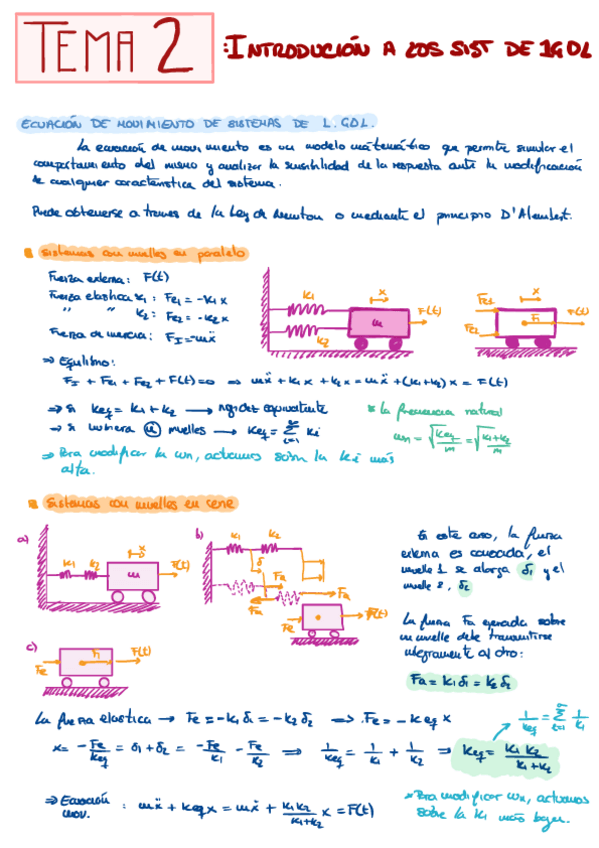 TEMA 2 : INTRODUCIÓN A LOS SIST DE 1GDL
ECUACIÓN DE MOVIMIENTO DE SISTEMAS DE 1.GDL.
La ecuación de movimiento es un modelo matemático que permite simular el
comportamiento del mismo y analizar la sensibilidad de la respuesta ante la modificación
de cualquier característica del sistema.
Puede obtenerse a traves de la Ley de Newton o mediante el principio D'Alembert.
sistemas con muelles en paralelo
Fuerza externa: F(t)
Fuerza elastica k1: Fe1 = -k1 x
" " k2: Fe2 = -k2 x
Fuerza de inercia: FI = -mẍ
k1 k2 m x F(t)
Fe1 Fe2 x FI F(t)
⇒ Equilibrio:
FI + Fe1 + Fe2 + F(t) = 0 ⇒ mẍ + k1 x + k2 x = mẍ + (k1+k2) x = F(t)
⇒ Si keq = k1 + k2 → rigidez equivalente
⇒ si hubiera n muelles → keq = Σ ki
* la frecuencia natural
ωn = √(keq/m) = √((k1+k2)/m)
⇒ Para modificar la ωn, actuamos sobre la ki más
alta.
Sistemas con muelles en serie
a) k1 k2 m x F(t)
b) k1 k2 δ Fa Fa Fa Fe F(t)
En este caso, la fuerza
externa es conocida, el
muelle 1 se alarga δ1 y el
muelle 2, δ2
La fuerza Fa ejercida sobre
un muelle debe transmitirse
integramente al otro:
Fa = k1 δ1 = k2 δ2
c) Fe FI F(t)
La fuerza elastica → Fe = -k1 δ1 = -k2 δ2 ⇒ Fe = -keq x
1/keq = Σ 1/ki
x = -Fe/keq = δ1 + δ2 = -Fe/k1 - Fe/k2 ⇒ 1/keq = 1/k1 + 1/k2 ⇒ keq = k1 k2/(k1+k2)
⇒ Ecuación
mov. : mẍ + keq x = mẍ + k1k2/(k1+k2) x = F(t)
* Para modificar ωn, actuamos
sobre la ki más baja.